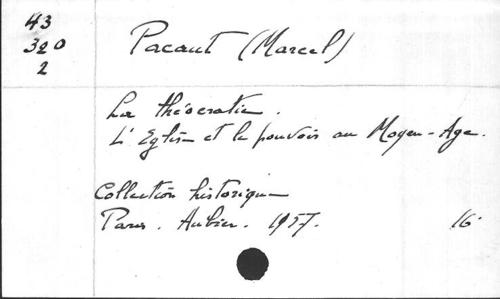 43
320
2
Pacaut (Marcel)
La théocratie.
L'Eglise et le pouvoir au Moyen-Age.
Collection historique
Paris. Aubier. 1957. 16°